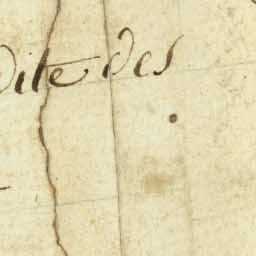 dite des